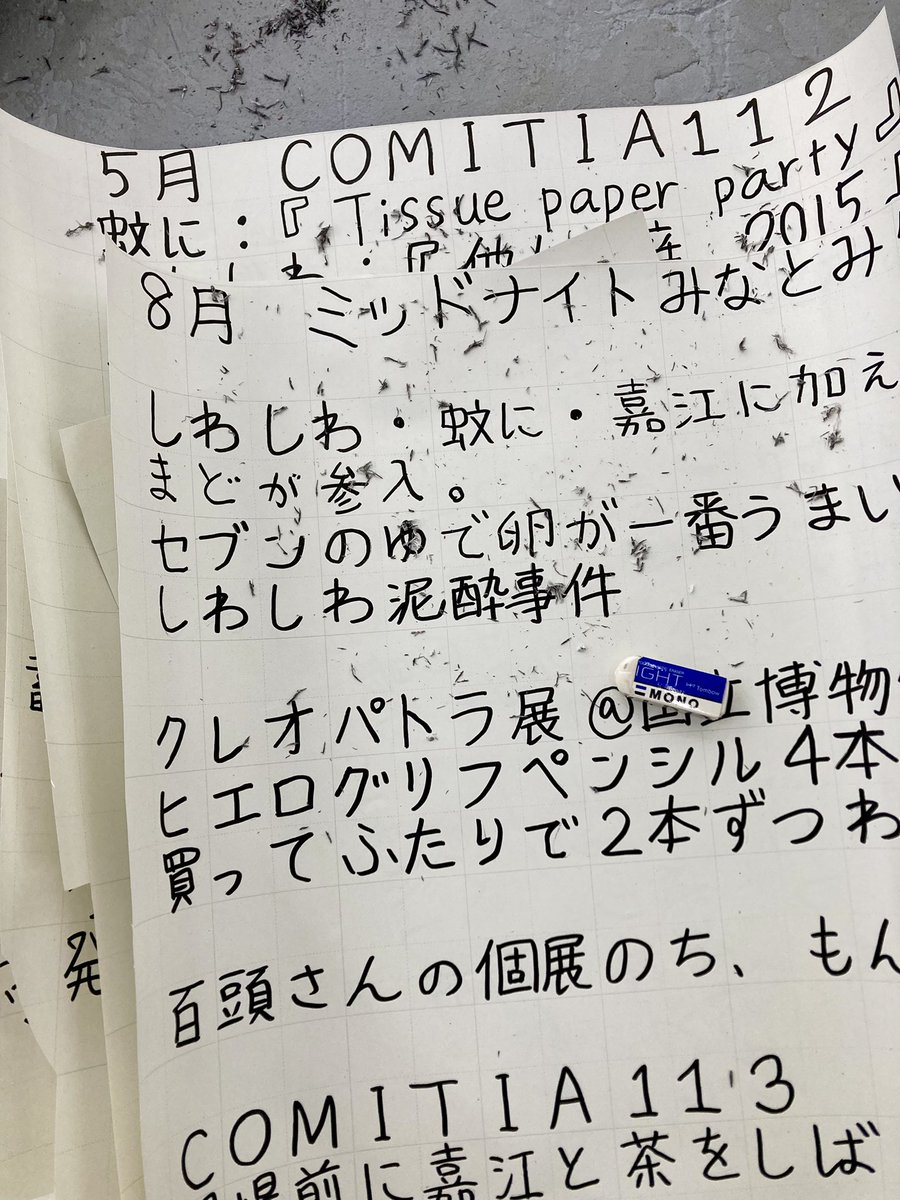 5月 COMITIA112
蚊に:『Tissue paper party』
2015
8月 ミッドナイトみなとみ
しわしわ・蚊に・嘉江に加え
まどが参入。
セブンのゆで卵が一番うまい
しわしわ泥酔事件
クレオパトラ展@国立博物
ヒエログリフペンシル4本
買ってふたりで2本ずつわ
百頭さんの個展のち、もん
COMITIA113
前に嘉江と茶をしば
発
MONO